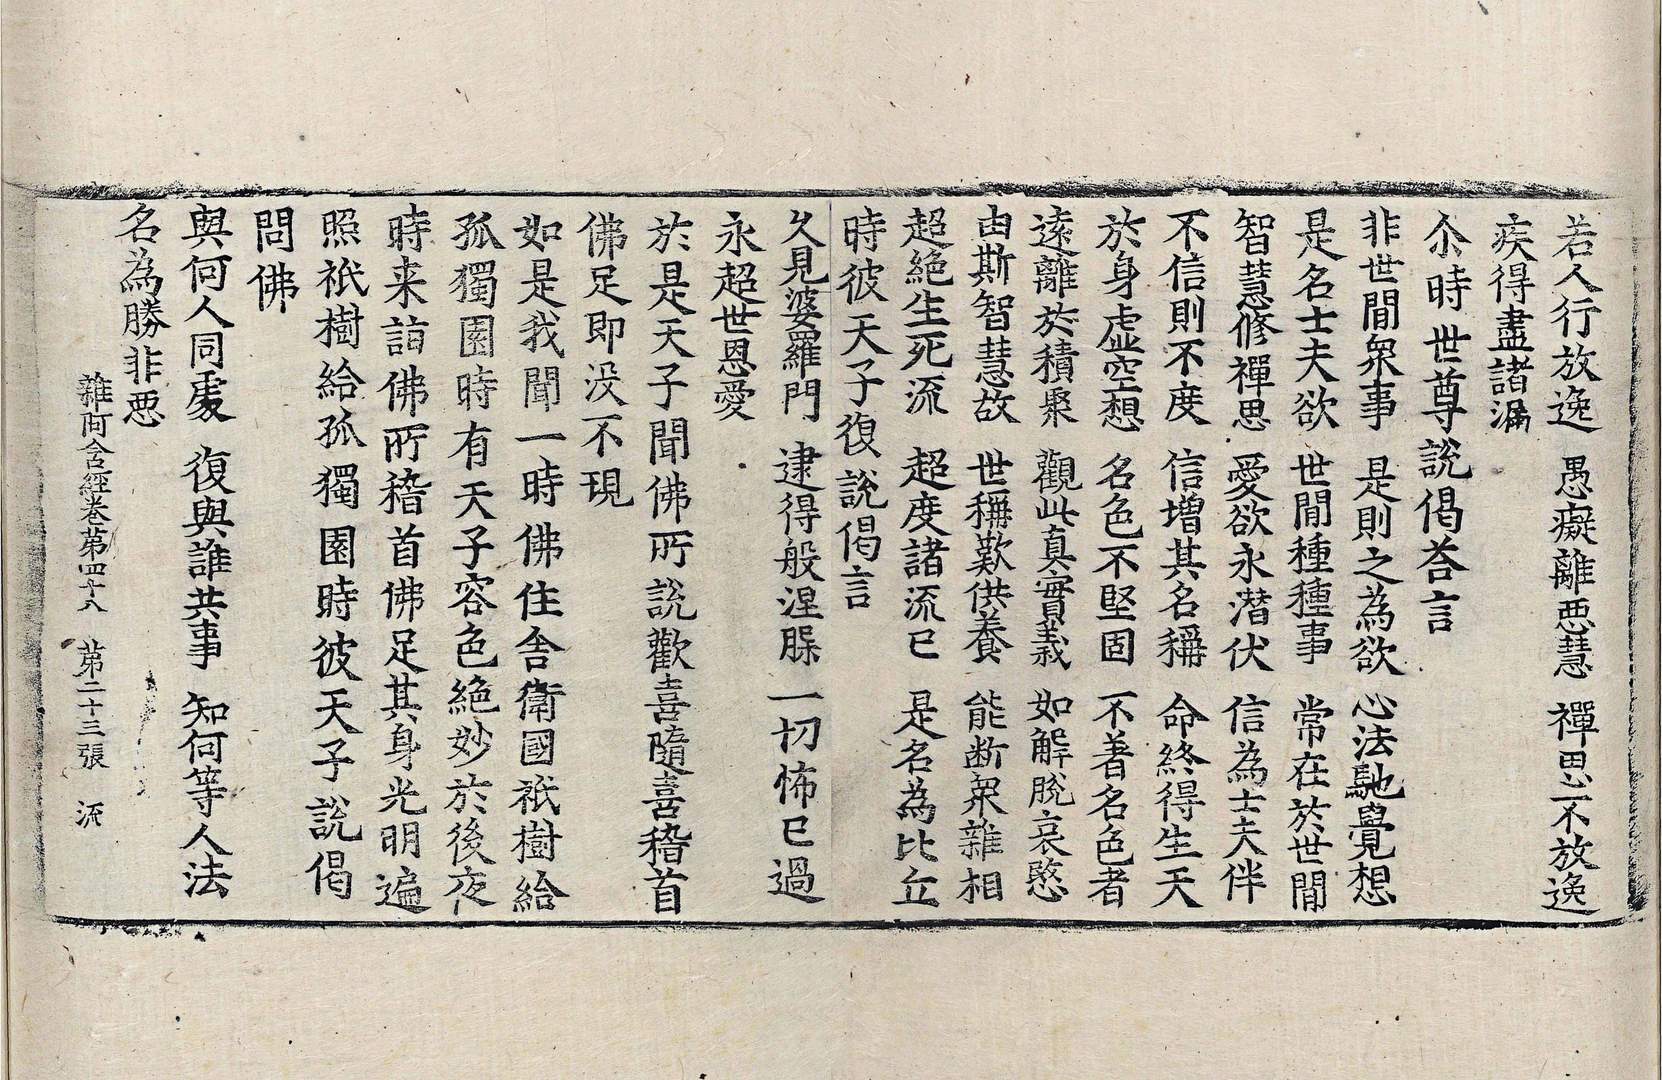 若人行放逸 愚癡離惡慧 禪思不放逸
疾得盡諸漏
尒時世尊說偈荅言
非世間衆事 是則之為欲 心法馳覺想
是名士夫欲 世間種種事 常在於世間
智慧修禪思 愛欲永潜伏 信為士夫伴
不信則不度 信增其名稱 命終得生天
於身虛空想 名色不堅固 不著名色者
遠離於積聚 觀此真實義 如解脫哀愍
由斯智慧故 世稱歎供養 能断衆雜相
超絕生死流 超度諸流已 是名為比丘
時彼天子復說偈言
久見婆羅門 逮得般涅槃 一切怖已過
永超世恩愛
於是天子聞佛所說歡喜隨喜稽首
佛足即没不現
如是我聞一時佛住舍衛國祇樹給
孤獨園時有天子容色絕妙於後夜
時来詣佛所稽首佛足其身光明遍
照祇樹給孤獨園時彼天子說偈
問佛
與何人同處 復與誰共事 知何等人法
名為勝非惡
雜阿含經卷第四十八 第二十三張 流